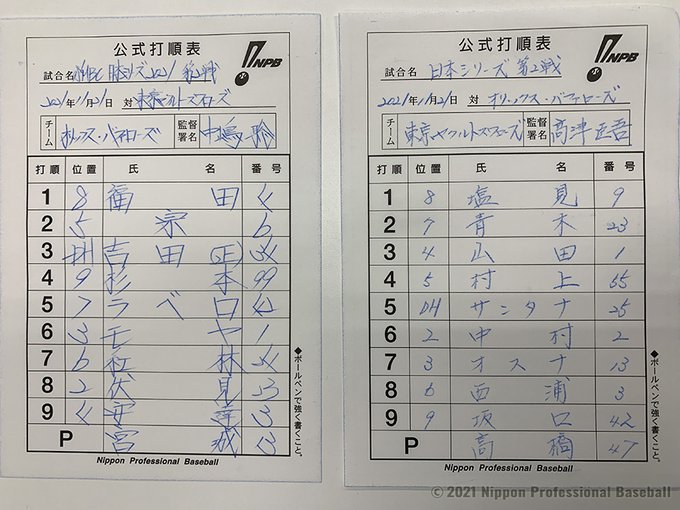 公式打順表 NPB
試合名 SMBC 日本シリーズ2021 第2戦
2021年11月21日 対 東京ヤクルトスワローズ
チーム オリックス・バファローズ 監督署名 中嶋 聡
打順 位置 氏名 番号
1 8 福田 4
2 5 宗 6
3 DH 吉田(正) 34
4 9 杉本 99
5 7 ラベロ 42
6 3 モヤ 1
7 6 紅林 24
8 2 伏見 23
9 4 安達 3
P 宮城 13
◆ボールペンで強く書くこと。
Nippon Professional Baseball
公式打順表 NPB
試合名 日本シリーズ 第2戦
2021年11月21日 対 オリックス・バファローズ
チーム 東京ヤクルトスワローズ 監督署名 高津 臣吾
打順 位置 氏名 番号
1 8 塩見 9
2 7 青木 23
3 4 山田 1
4 5 村上 55
5 DH サンタナ 25
6 2 中村 2
7 3 オスナ 13
8 6 西浦 3
9 9 坂口 42
P 高橋 47
◆ボールペンで強く書くこと。
Nippon Professional Baseball
© 2021 Nippon Professional Baseball